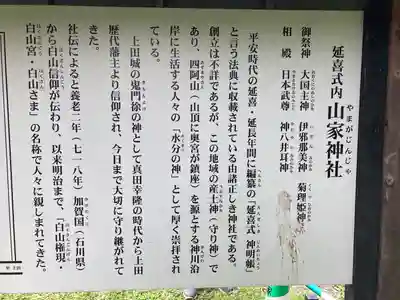 延喜式内 山家神社
やまがじんじゃ
御祭神 大国主神 伊邪那美神 菊理姫神
相殿 日本武尊 神八井耳神
平安時代の延喜・延長年間に編纂の「延喜式 神明帳」
と言う法典に収載されている由諸正しき神社である。
創立は不詳であるが、この地域の産土神(守り神)で
あり、四阿山(山頂に奥宮が鎮座)を源とする神川沿
岸に生活する人々の「水分の神」として厚く崇拝され
ている。
上田城の鬼門徐の神として真田幸隆の時代から上田
歴代藩主より信仰され、今日まで大切に守り継がれて
きた。
社伝によると養老二年(七一八年)加賀国(石川県)
から白山信仰が伝わり、以来明治まで、「白山権現・
白山宮・白山さま」の名称で人々に親しまれてきた。